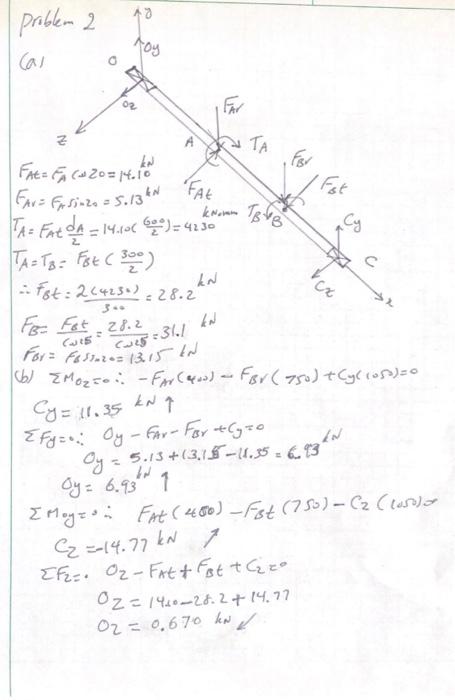 Problem 2
(a)
y
Oy
O
Oz
z
FAr
A
TA
FAt
FBr
FBt
TB
B
Cy
C
Cz
x
FAt = FA cos20 = 14.10 kN
FAr = FA sin20 = 5.13 kN
TA = FAt dA/2 = 14.10 (600/2) = 4230 kN·mm
TA = TB = FBt (300/2)
∴ FBt = 2(4230)/300 = 28.2 kN
FB = FBt/cos25 = 28.2/cos25 = 31.1 kN
FBr = FB sin20 = 13.15 kN
(b) ΣMOz=0 ∴ -FAr(400) - FBr(750) + Cy(1050)=0
Cy = 11.35 kN ↑
ΣFy=0 ∴ Oy - FAr - FBr + Cy = 0
Oy = 5.13 + 13.15 - 11.35 = 6.93 kN
Oy = 6.93 kN ↑
ΣMOy=0 ∴ FAt(400) - FBt(750) - Cz(1050)=0
Cz = -14.77 kN ↗
ΣFz=0 Oz - FAt + FBt + Cz = 0
Oz = 14.10 - 28.2 + 14.77
Oz = 0.670 kN ↙